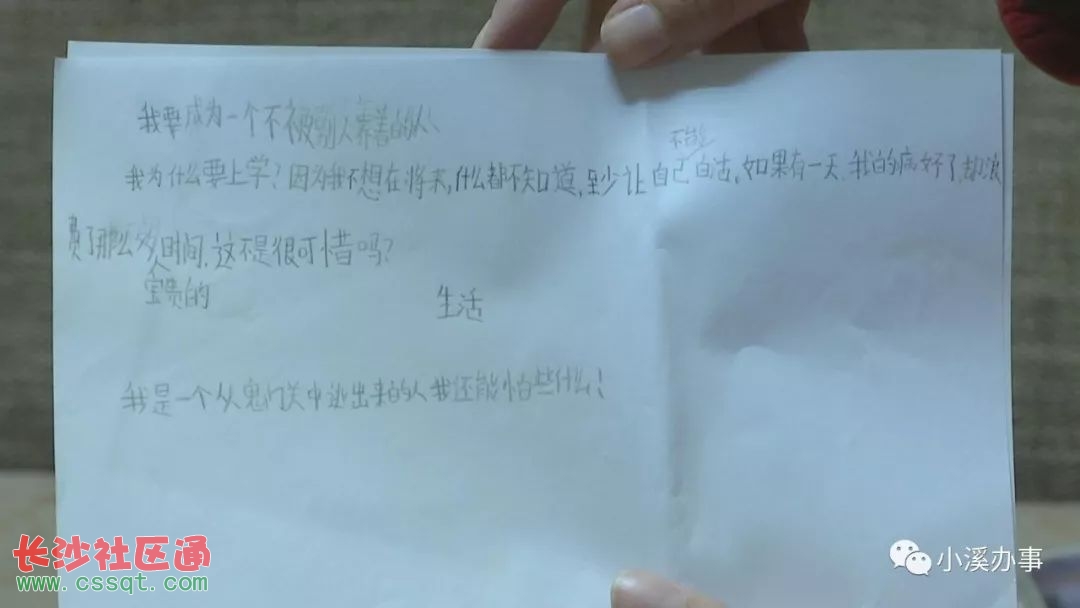 我要成为一个不被别人养着的人
不做
我为什么要上学?因为我不想在将来,什么都不知道,至少让自己白活。如果有一天,我的病好了,却浪
费了那么多时间,这不是很可惜吗?
宝贵的
生活
我是一个从鬼门关中逃出来的人我还能怕些什么!
长沙社区通
www.cssqt.com
小溪办事